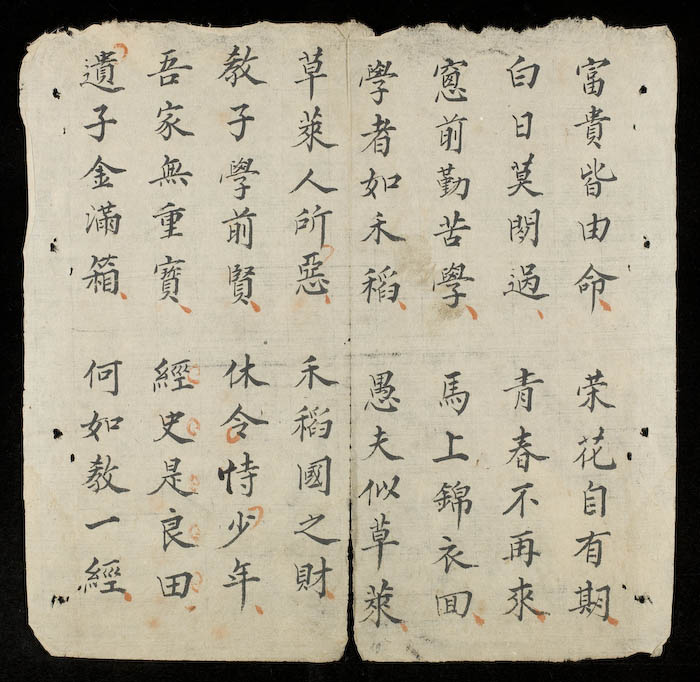 富貴皆由命 荣花自有期
白日莫閑過 青春不再來
窻前勤苦學 馬上錦衣囬
學者如禾稻 愚夫似草萊
草萊人所惡 禾稻國之財
教子學前賢 休令恃少年
吾家無重寳 經史是良田
遺子金滿箱 何如教一經